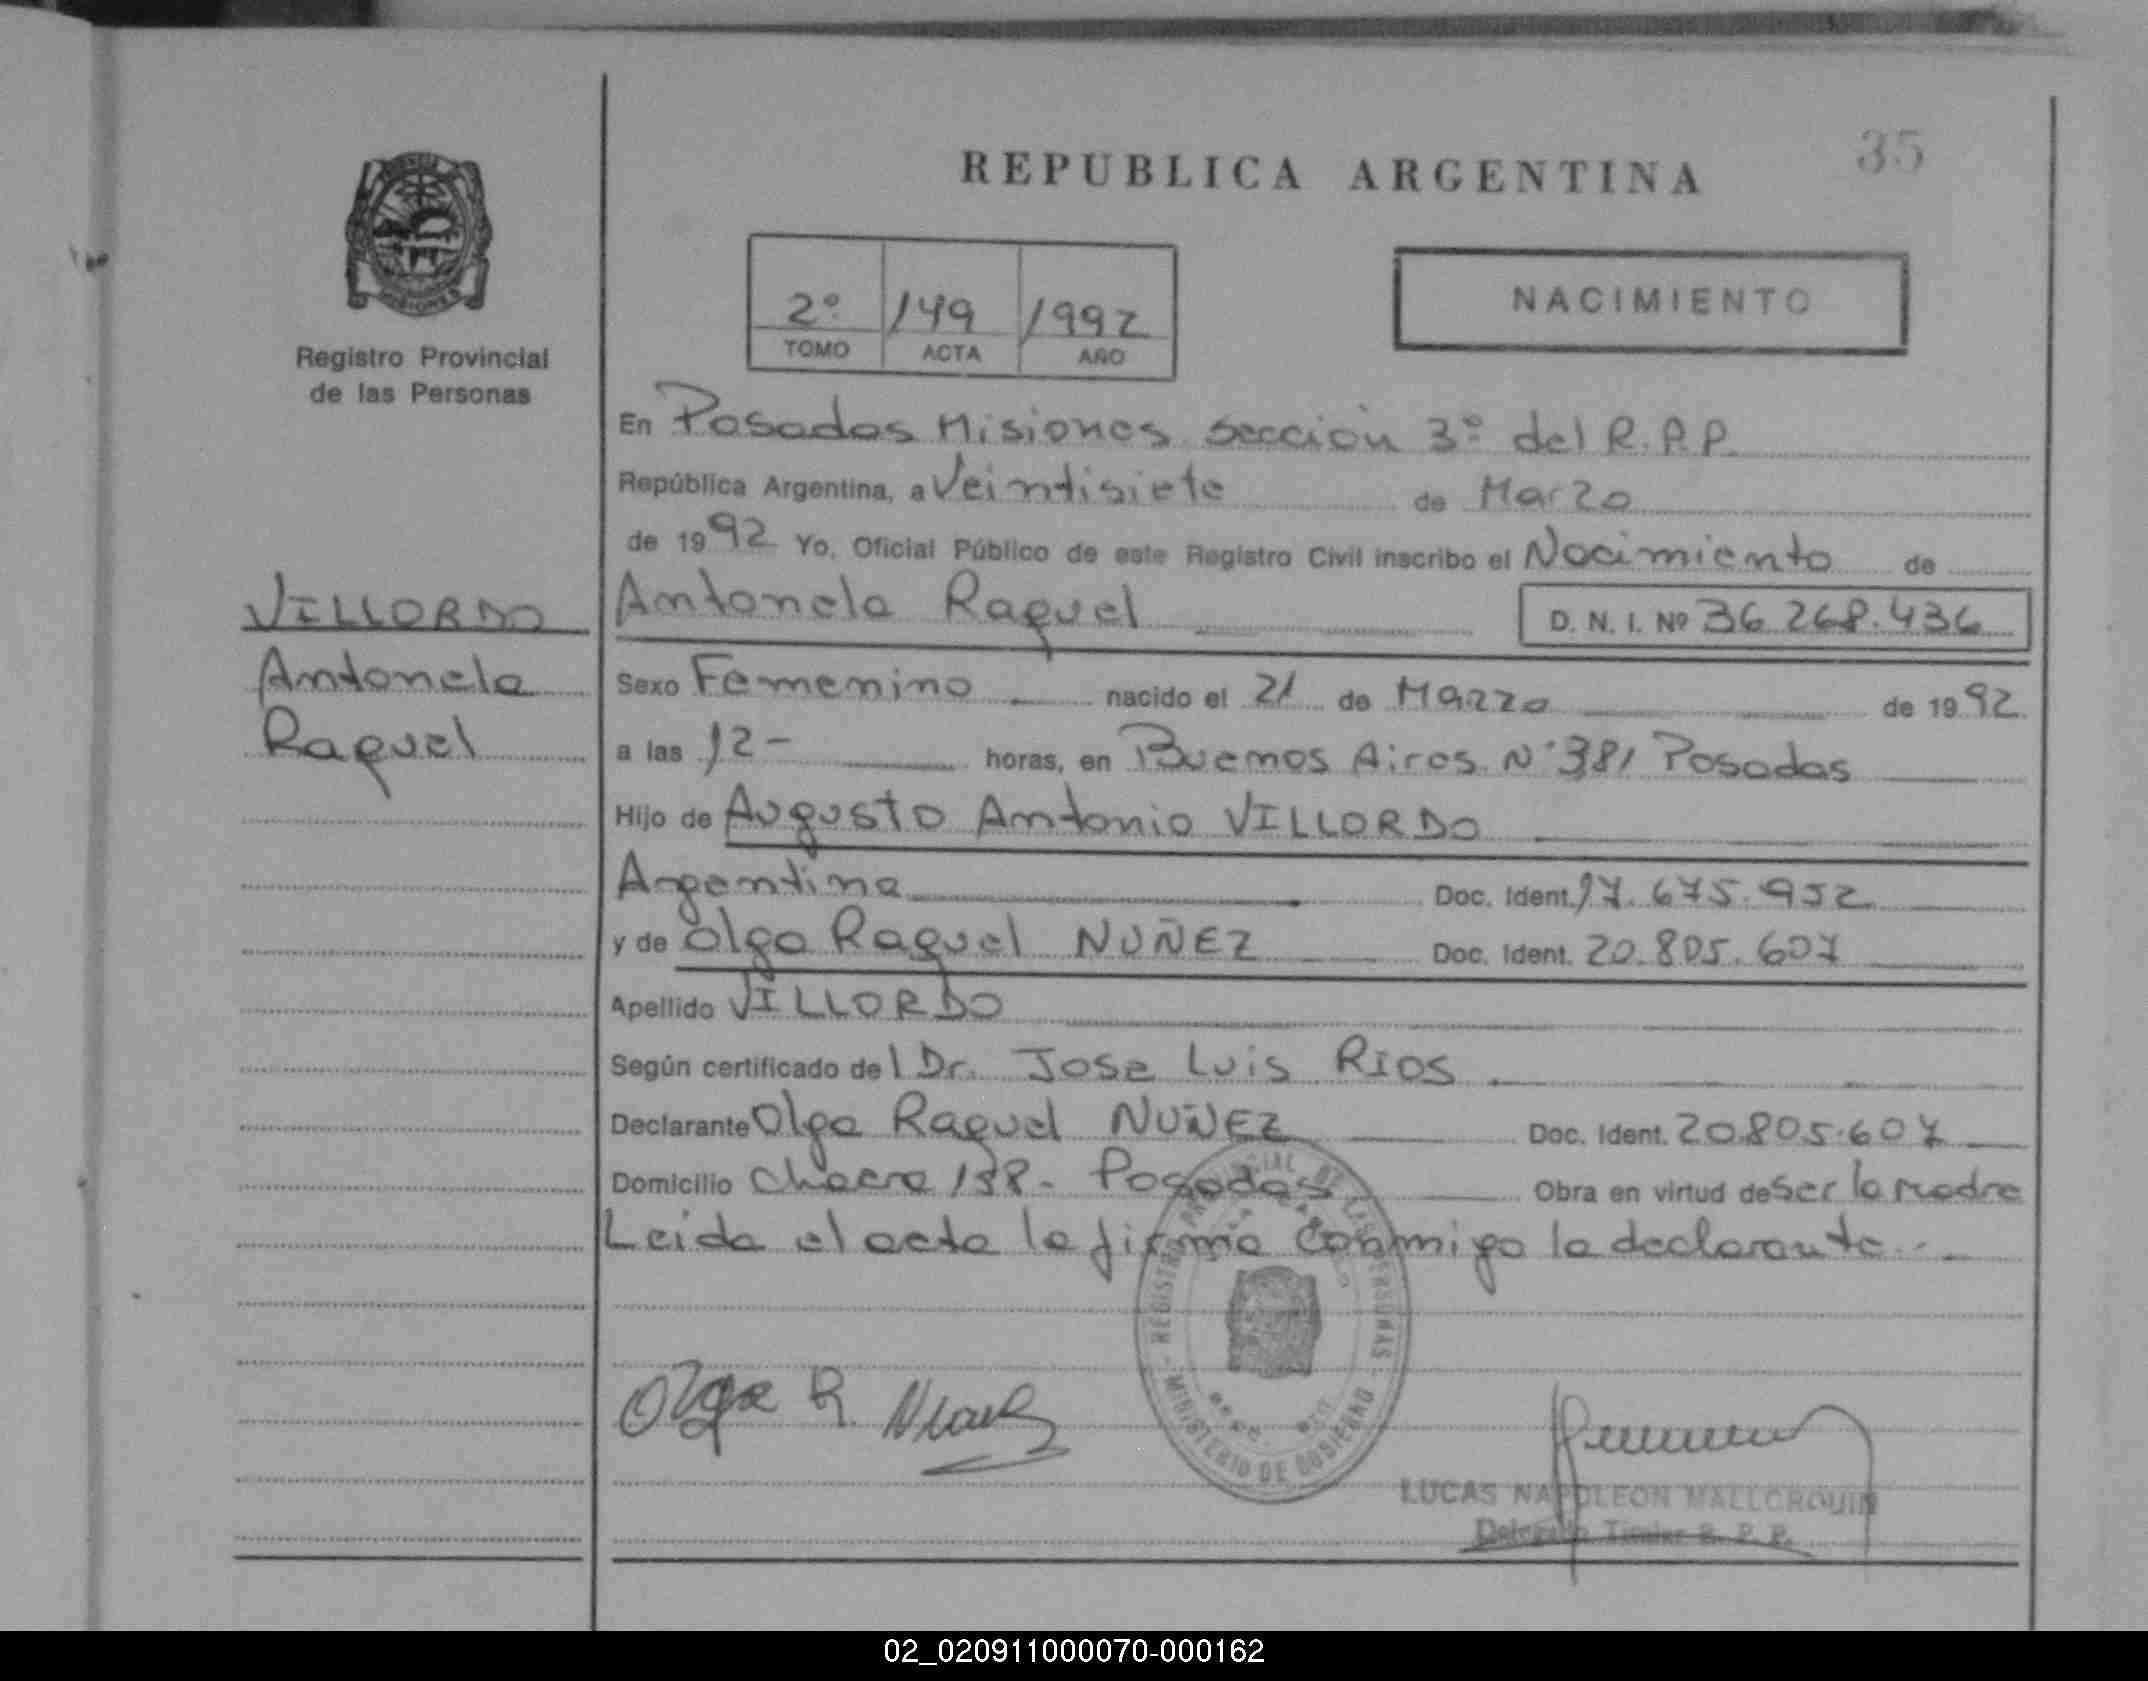 35
REPUBLICA ARGENTINA
NACIMIENTO
2º 149 1992
TOMO ACTA AÑO
Registro Provincial
de las Personas
En Posadas Misiones sección 3º del R.P.P.
República Argentina, a Veintisiete de Marzo
de 1992 Yo, Oficial Público de este Registro Civil inscribo el Nacimiento de
Antonela Raquel D. N. I. Nº 36.268.436
VILLORDO
Antonela
Raquel
Sexo Femenino nacido el 21 de Marzo de 1992
a las 12- horas, en Buenos Aires Nº 381 Posadas
Hijo de Augusto Antonio VILLORDO
Argentina Doc. Ident. 17.675.952
y de Olga Raquel NUÑEZ Doc. Ident. 20.805.607
Apellido VILLORDO
Según certificado del Dr. Jose Luis RIOS
Declarante Olga Raquel NUÑEZ Doc. Ident. 20.805.607
Domicilio Chacra 158- Posadas Obra en virtud de ser la madre
Leida el acta la firma conmigo la declarante.-
REGISTRO PROVINCIAL DE LAS PERSONAS
MINISTERIO DE GOBIERNO
Olga R. Nuñez
LUCAS NAPOLEON MALLORQUIN
Delegado Titular R. P. P.
02_020911000070-000162